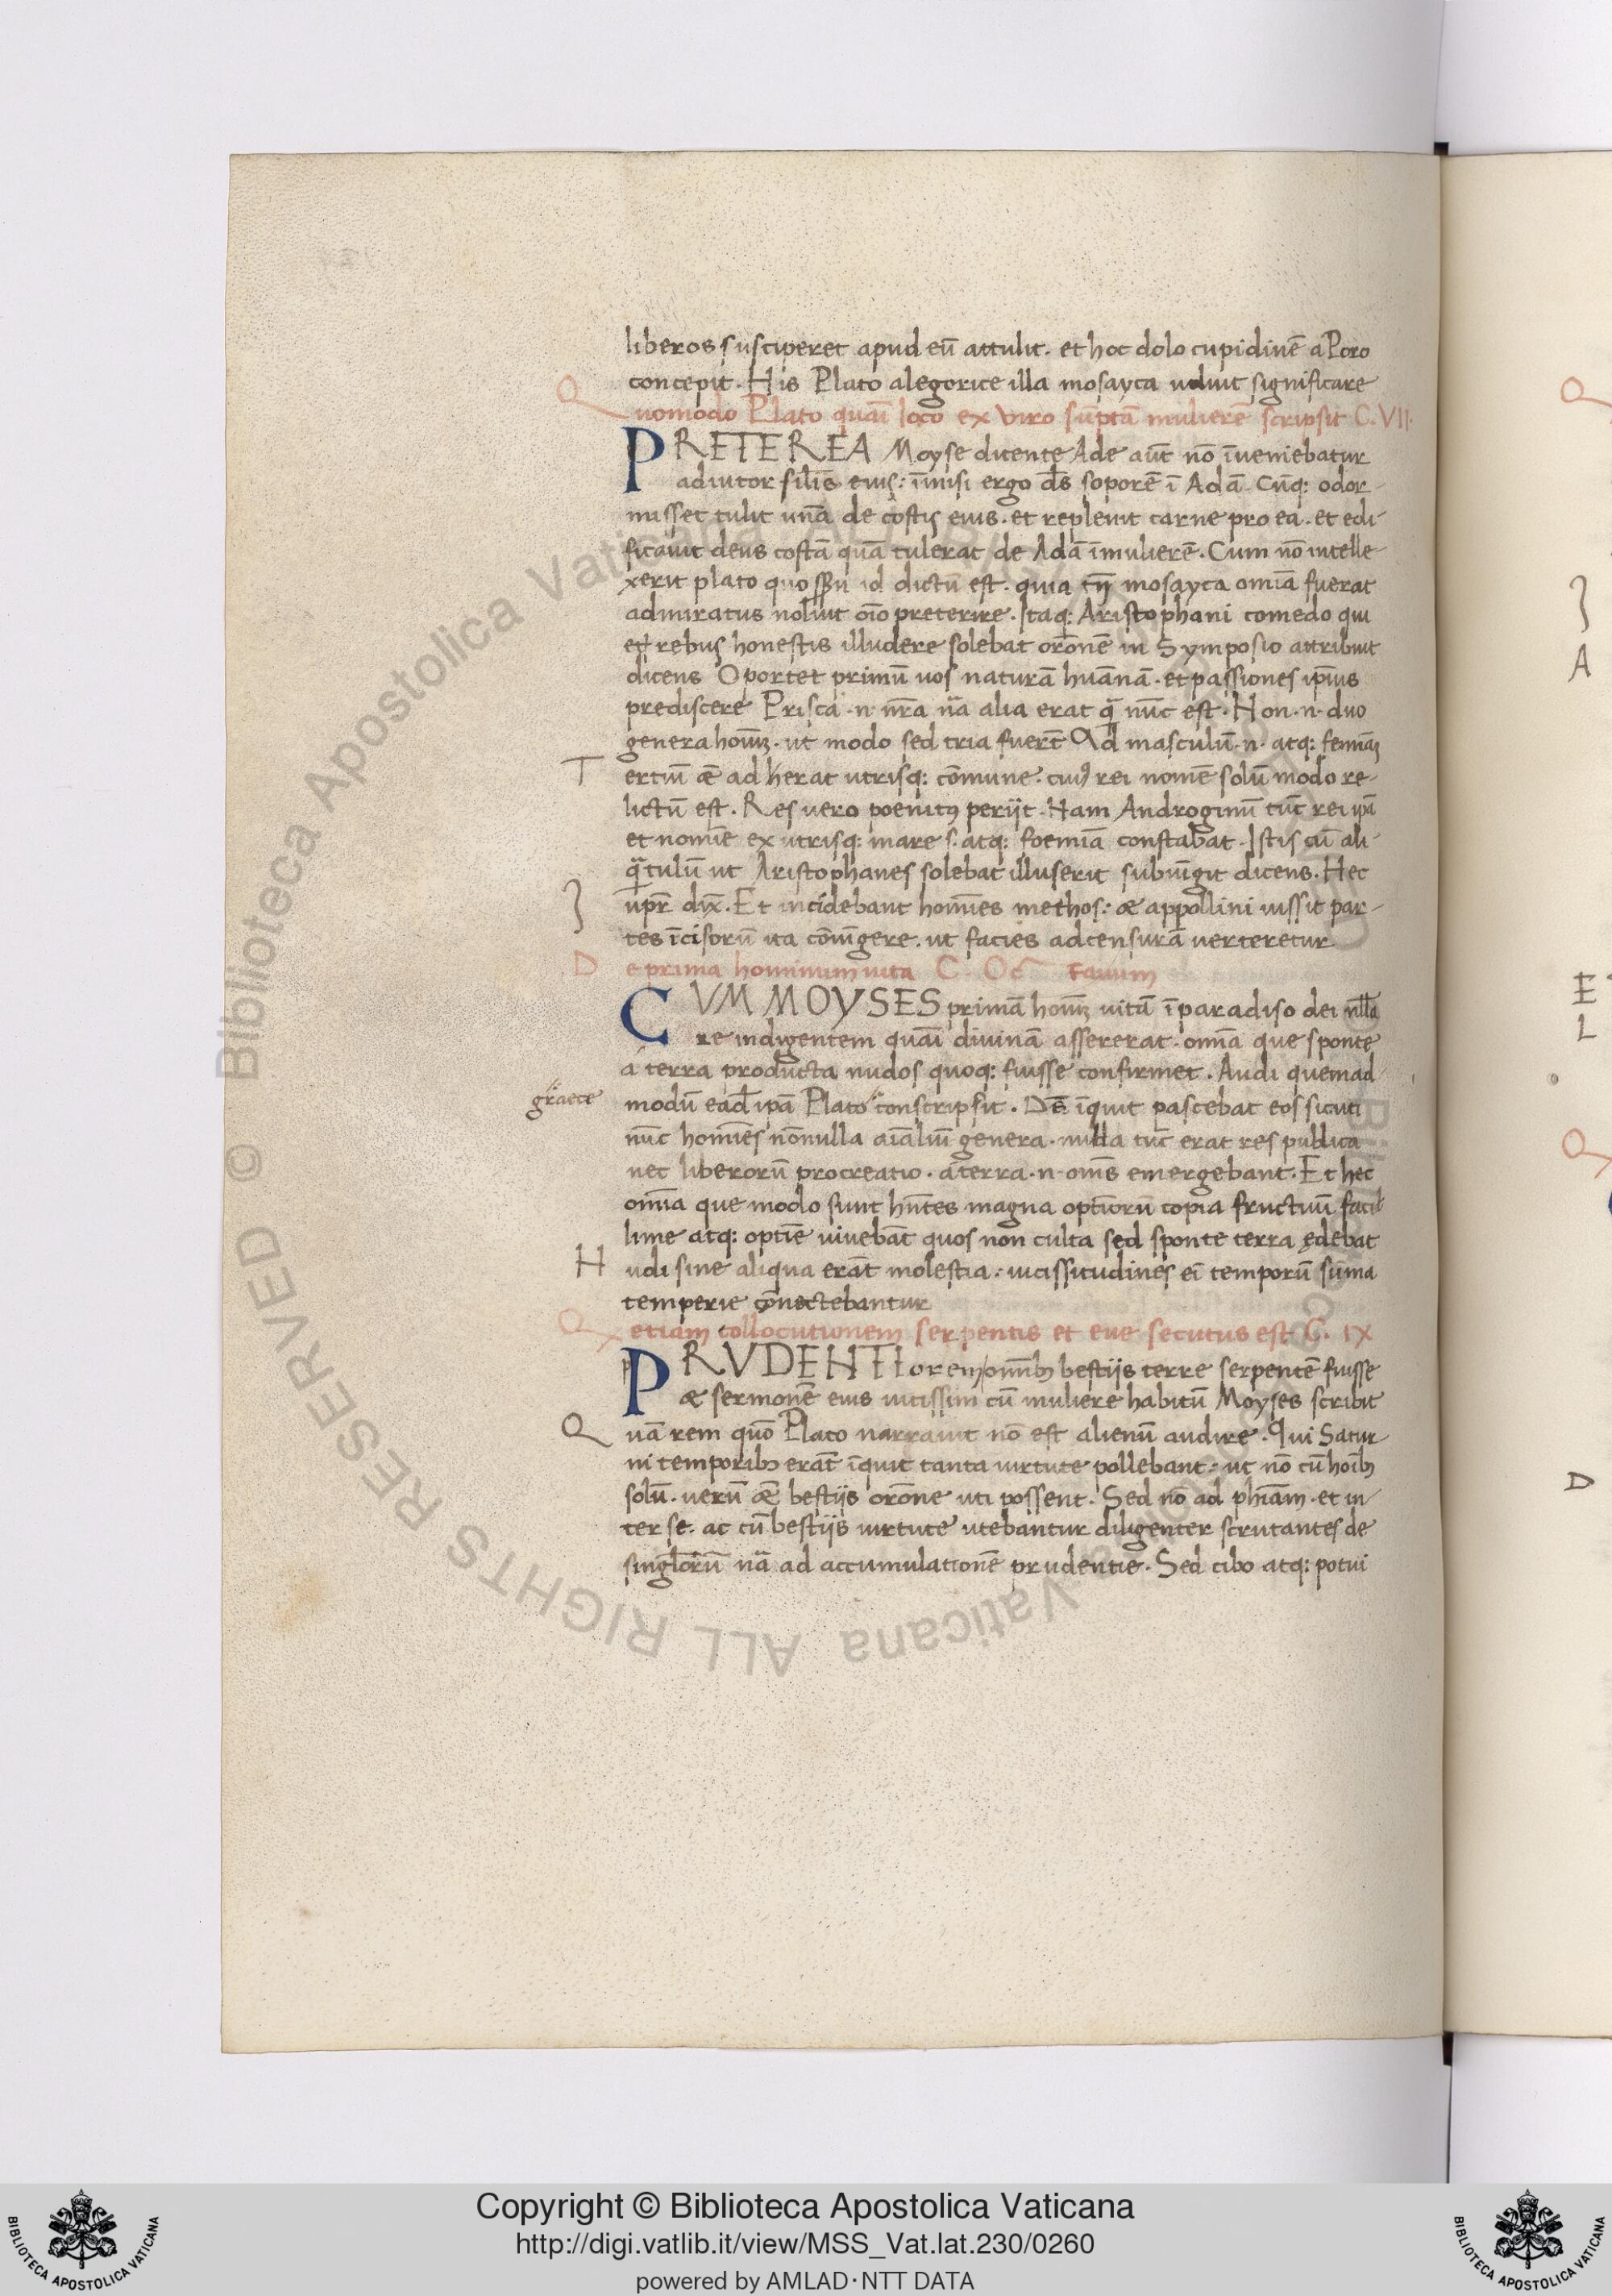 liberos susciperet apud eū attulit. et hoc dolo cupidinē a Poro
concepit. His Plato alegorice illa mosayca uoluit significare
Quomodo Plato quaꝫ loco ex viro sūptā mulierē scripsit C. VII.
PRETEREA Moyse dicente Ade aūt nō īveniebatur
adiutor siƚis eius: īmisi ergo d̄s soporē ī Adā. Cūq: odor-
misset tulit unā de costis eius. et repleuit carne pro ea. et edi-
ficauit deus costā quā tulerat de Adā ī mulierē. Cum nō intelle-
xerit plato quo id dictū est. quia tn̄ mosayca omīa fuerat
admiratus noluit oīo preterire. Itaq: Aristophani comedo qui
et rebus honestis illudere solebat orōnē in Symposio attribuit
dicens Oportet primū uos naturā huānā. et passiones ip̄ius
prediscere Prisca .n. nr̄a nā alia erat q̄ nūc est. Non .n. duo
genera homīꝫ. ut modo sed tria fuerūt Ad masculū .n. atq: femīaꝫ
Tertiū ǣ ad herat utrisq: cōmune. cuiꝰ rei nomē solū modo re-
lictū est. Res uero poenitꝰ perijt. Nam Androginū tūc rei ip̄a
et nomīe ex utrisq: mare .s. atq: foemīa constabat. Istis cū ali-
q̄tulū ut Aristophanes solebat illuserit subiūgit dicens. Hec
Iupr̄ dix̄. Et incidebant homīes methos: æ appollini iussit par-
tes īcisorū ita cōiūgere. ut facies ad censurā uerteretur
De prima hominum uita C. Octauum
CVM MOYSES primā homīꝫ uitā ī paradiso dei nƚƚa
re indigentem quaꝫ diuinā assererat. omīa que sponte
a terra producta nudos quoq: fuisse confirmet. Audi quemad
graece
modū ead̄ ip̄a Plato conscripsit. De̅s īquit pascebat eos sicuti
nūc homīes nōnulla aīaliū genera. nulla tūc erat res publica
nec liberorū procreatio. a terra .n. oms̄ emergebant. Et hec
omīa que modo sunt hn̄tes magna optīorū copia fructuū facil
lime atq: optīe uiuebāt quos non culta sed sponte terra ędebat
Nudi sine aliqua erāt molestia. uicissitudines eī temporū sūma
temperie cōnectebantur
Q etiam collocutionem serpentis et eue secutus est C. IX
PRVDENTIorem omībꝫ bestijs terre serpentē fuisse
æ sermonē eius uicissim cū muliere habitū Moyses scribit
Quā rem quō Plato narrauit nō est alienū audire. Qui Satur-
ni temporibꝫ erāt īquit tanta uirtute pollebant. ut nō cū hoībꝫ
solū. uerū ǣ bestijs orōne uti possent. Sed nō ad phīam. et in-
ter se. ac cū bestijs uirtute utebantur diligenter scrutantes de
singƚorū nā ad accumulationē prudentie. Sed cibo atq: potui
Copyright © Biblioteca Apostolica Vaticana
http://digi.vatlib.it/view/MSS_Vat.lat.230/0260
powered by AMLAD·NTT DATA